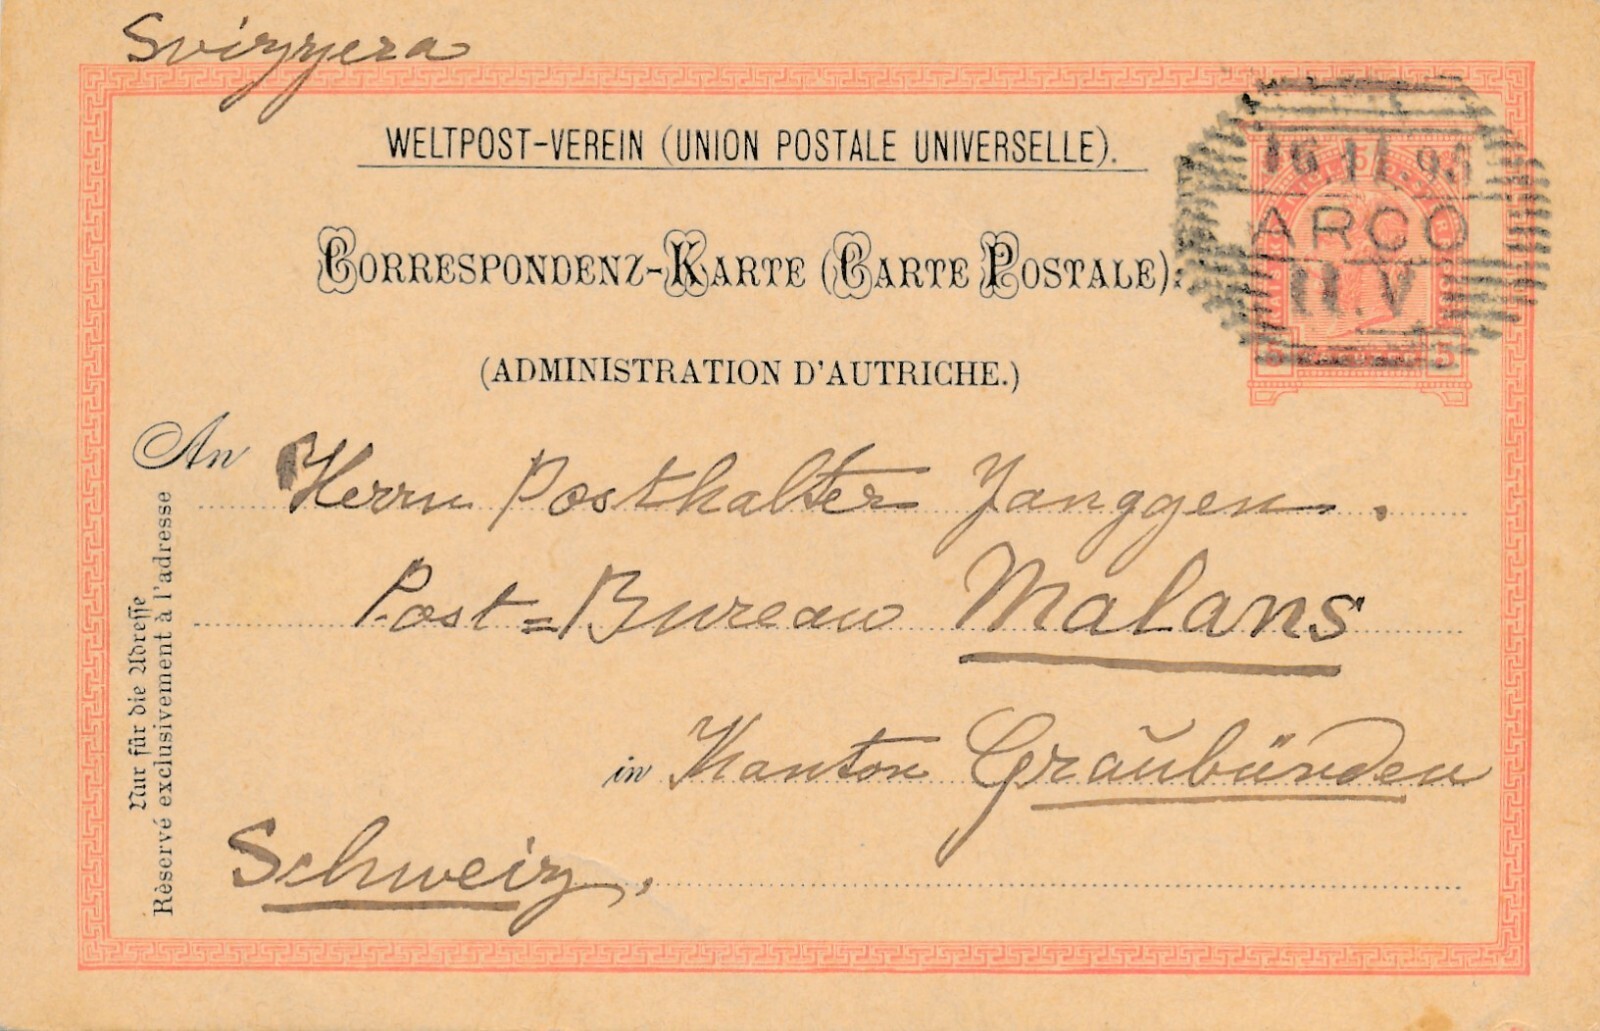 Svizzera
WELTPOST-VEREIN (UNION POSTALE UNIVERSELLE).
CORRESPONDENZ-KARTE (CARTE POSTALE).
(ADMINISTRATION D'AUTRICHE.)
16.11.95
ARCO
11.V
5
5
An Herrn Posthalter Janggen.
Post=Bureau Malans
in Kanton Graŭbünden
Schweiz,
Nur für die Adresse
Rèservé exclusivement à l'adresse